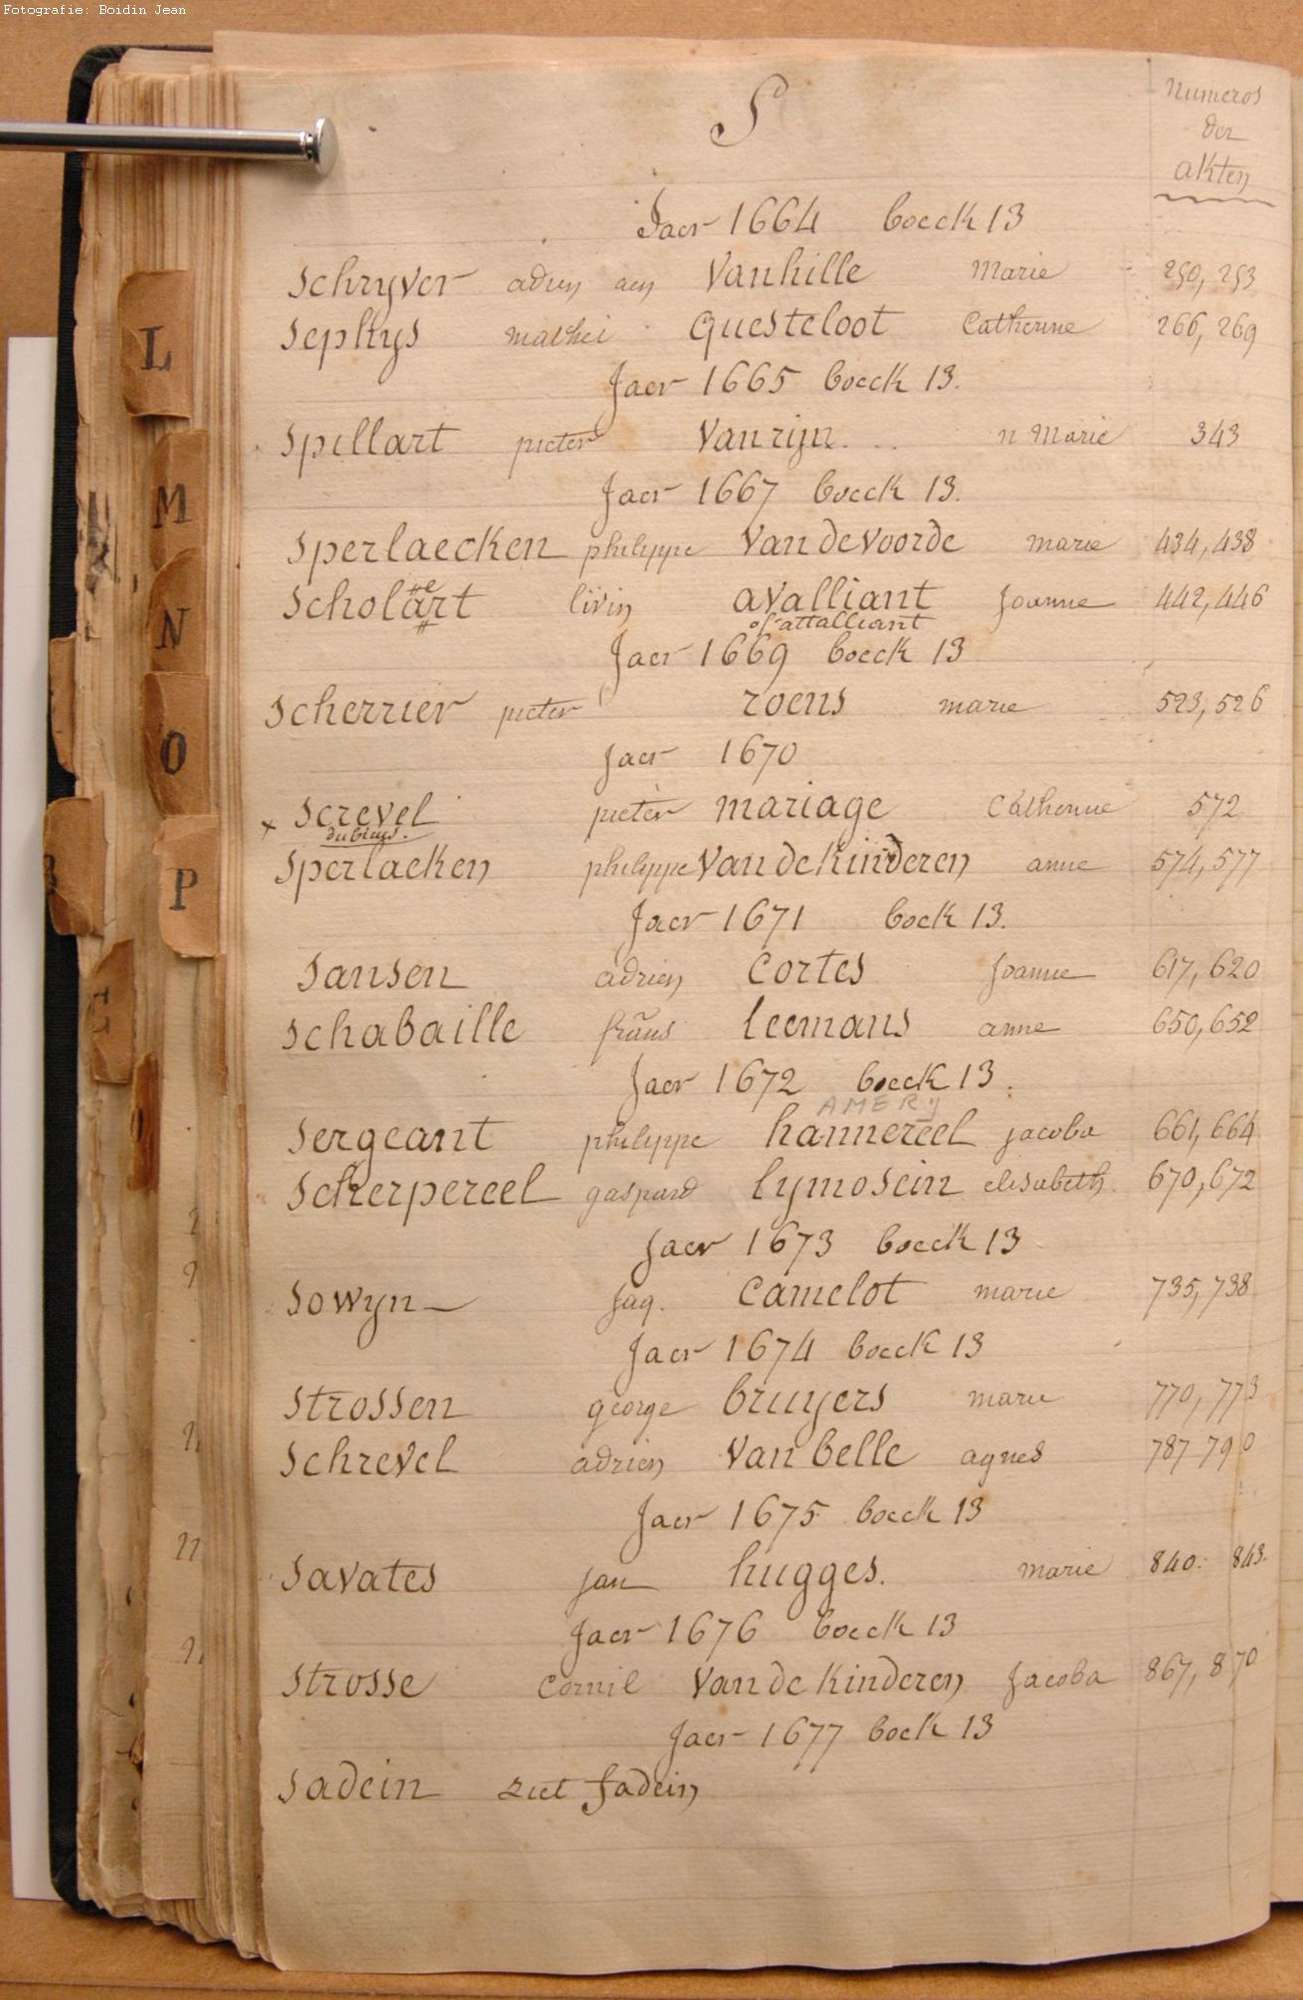 Fotografie: Boidin Jean
S
Numeros
der
akten
Jaer 1664 boeck 13
Schryver adrien Vanhille Marie 250, 253
Sephys mathei Questeloot Catherine 266, 269
Jaer 1665 boeck 13.
Spillart pieter Vanrijn... n Marie 343
Jaer 1667 boeck 13.
Sperlaecken philippe Van de Voorde marie 434, 438
e
Scholart livin avalliant Joanne 442, 446
of attalliant
Jaer 1669 boeck 13
Scherrier pieter roens marie 523, 526
Jaer 1670
x Screvel pieter mariage Catherine 572
dubieus.
Sperlaeken philippe Van de Kinderen anne 574, 577
Jaer 1671 boek 13.
Sansen adrien Cortes Joanne 617, 620
Schabaille frãns leemans anne 650, 652
Jaer 1672 boeck 13.
AMERY
Sergeant philippe hannereel jacoba 661, 664
Scherpereel gaspard lymosein elisabeth 670, 672
Jaer 1673 boeck 13
Sowyn jaq. Camelot marie 735, 738
Jaer 1674 boeck 13
Strossen george bruyers marie 770, 773
Schrevel adrien Van belle agnes 787 790
Jaer 1675 boeck 13
Savates jan hugges. marie 840. 843.
Jaer 1676 boeck 13
Strosse Cornil Van de Kinderen Jacoba 867, 870
Jaer 1677 boek 13
Sadein ziet fadein
L
M
N
O
P